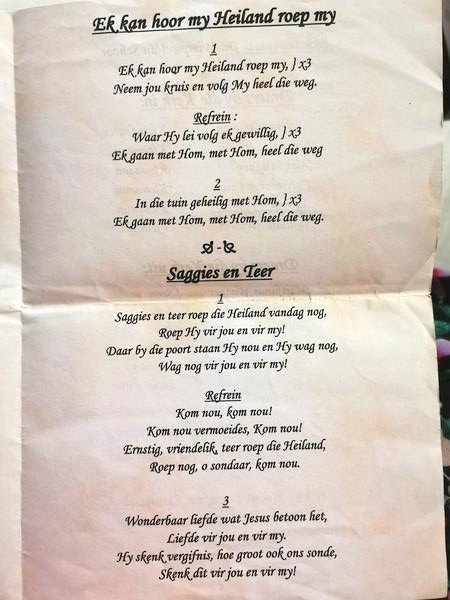 Ek kan hoor my Heiland roep my
1
Ek kan hoor my Heiland roep my, } x3
Neem jou kruis en volg My heel die weg.
Refrein :
Waar Hy lei volg ek gewillig, } x3
Ek gaan met Hom, met Hom, heel die weg
2
In die tuin geheilig met Hom, } x3
Ek gaan met Hom, met Hom, heel die weg.
Saggies en Teer
1
Saggies en teer roep die Heiland vandag nog,
Roep Hy vir jou en vir my!
Daar by die poort staan Hy nou en Hy wag nog,
Wag nog vir jou en vir my!
Refrein
Kom nou, kom nou!
Kom nou vermoeides, Kom nou!
Ernstig, vriendelik, teer roep die Heiland,
Roep nog, o sondaar, kom nou.
3
Wonderbaar liefde wat Jesus betoon het,
Liefde vir jou en vir my.
Hy skenk vergifnis, hoe groot ook ons sonde,
Skenk dit vir jou en vir my!